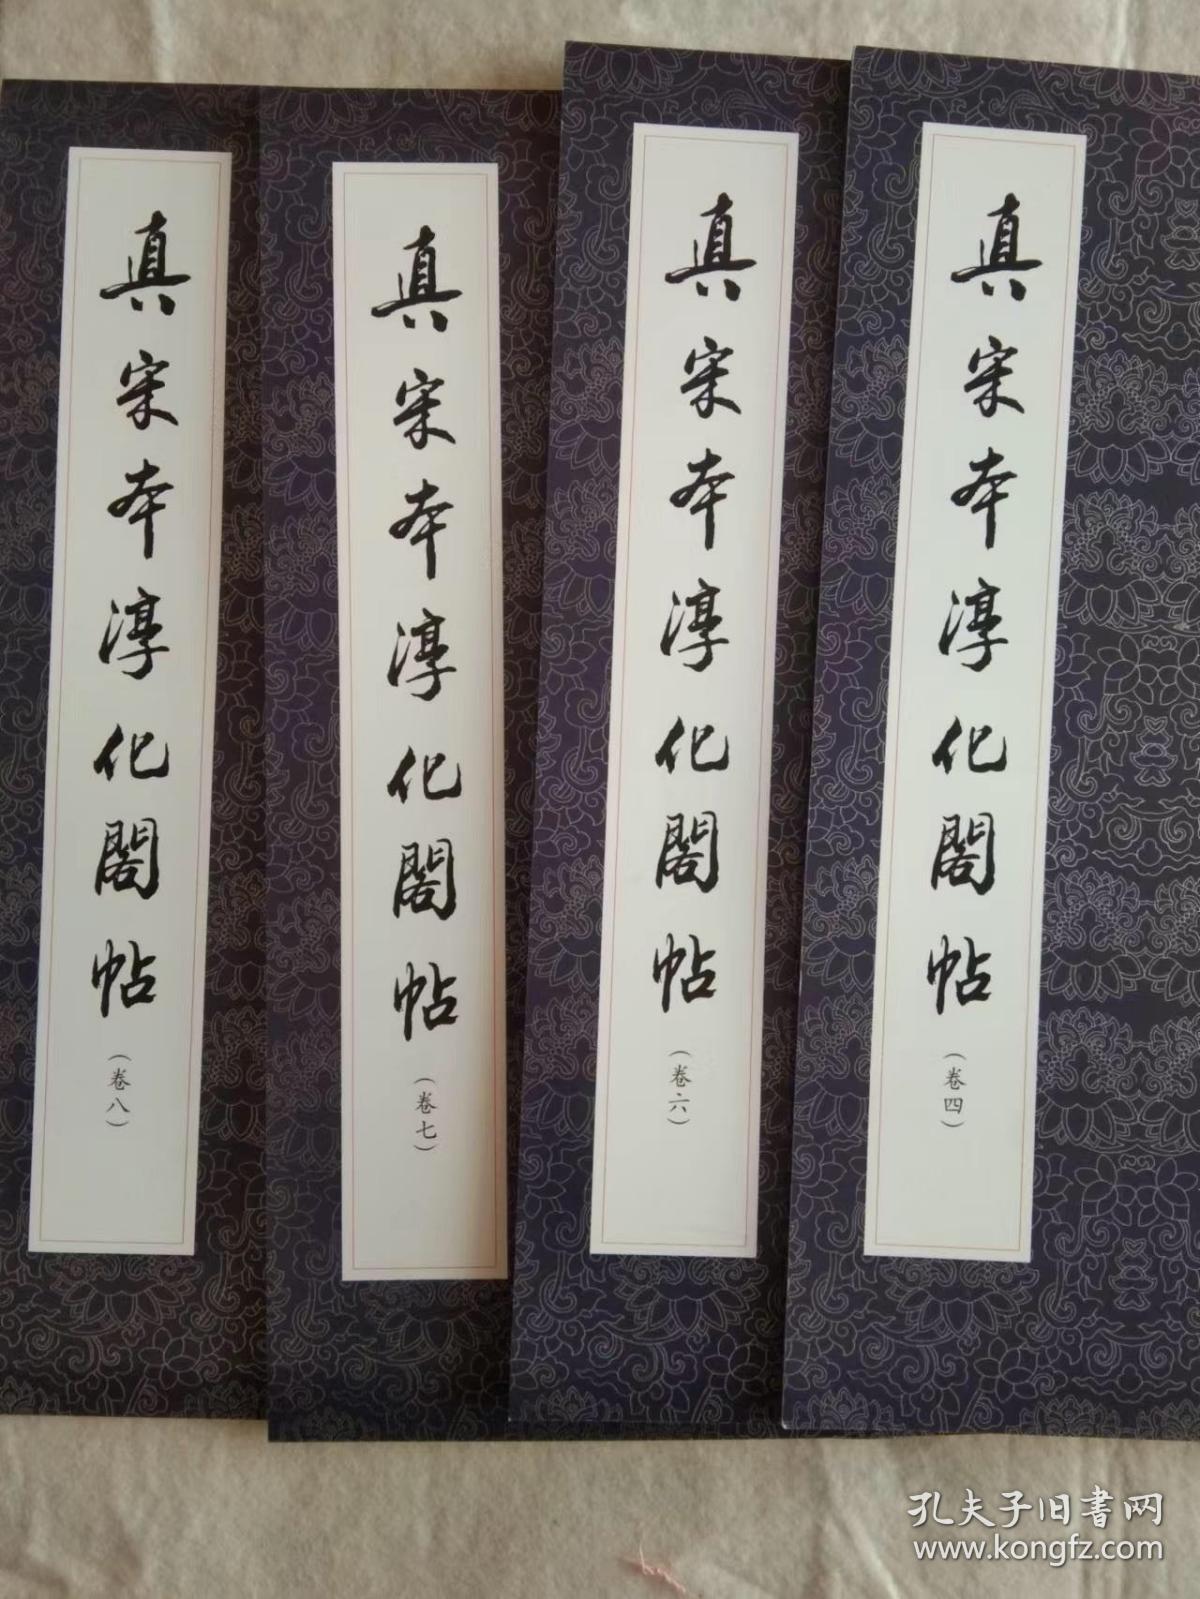 真宋本淳化閣帖
（卷四）
真宋本淳化閣帖
（卷六）
真宋本淳化閣帖
（卷七）
真宋本淳化閣帖
（卷八）
孔夫子旧书网
www.kongfz.com